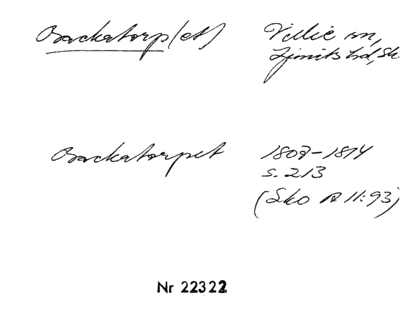 Backatorp(et) Villie sn,
Ljunits hd, Sk.
Backatorpet 1809-1814
s. 213
(Sko A II:93)
Nr 22322